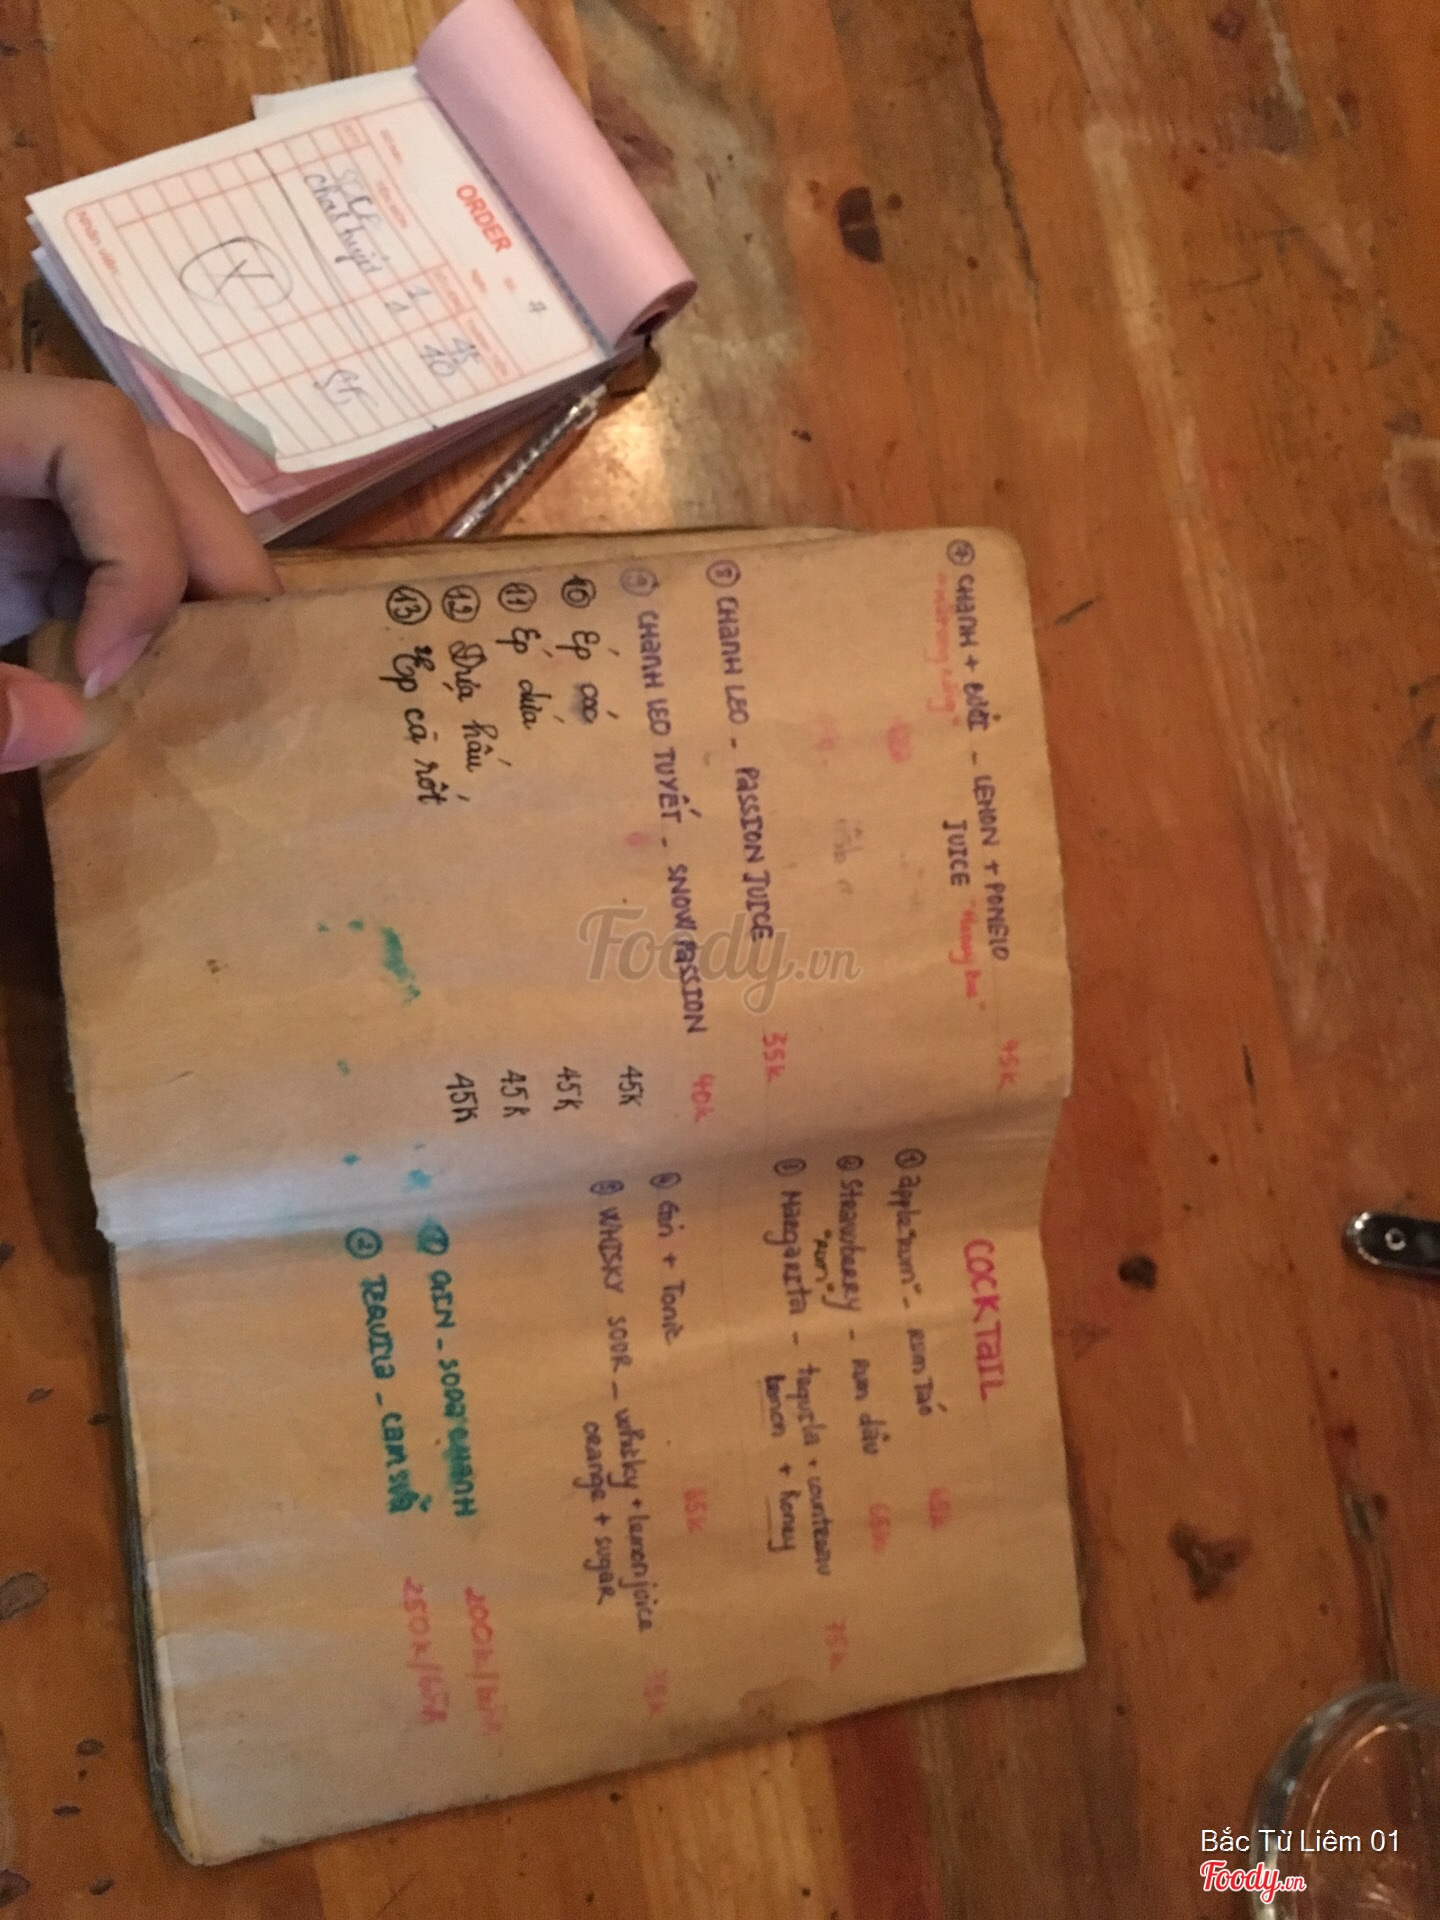 ORDER
chai tuyết 1 10
⑦ CHANH + BƯỞI - LEMON + POMELO
JUICE
45k
⑧ CHANH LEO - PASSION JUICE
35k
⑨ CHANH LEO TUYẾT - SNOW PASSION
40k
⑩ Ép 45K
⑪ Ép dứa 45K
⑫ Dưa hấu 45K
⑬ Ép cà rốt 45K
COCKTAIL
① apple "rum" - RUM Táo
65k
② Strawberry - RUM dâu
"Rum"
65k
③ MARGARITA - tequila + countreau
lemon + honey
75k
④ Gin + Tonic
65k
⑤ WHISKY SOUR - whisky + lemon juice
orange + sugar
75k
① GIN - SODA CHANH
200k/
② TEQUILA - cam
250k/
Foody.vn
Bắc Từ Liêm 01
Foody.vn